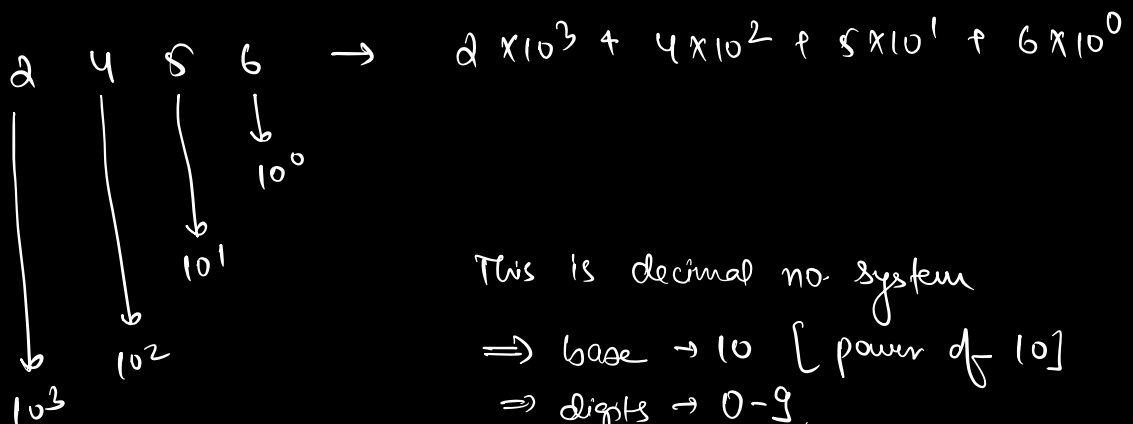 2 4 5 6 → 2 × 10³ + 4 × 10² + 5 × 10¹ + 6 × 10⁰
10⁰
10¹
This is decimal no. system
10²
⇒ base → 10 [ power of 10]
10³
⇒ digits → 0-9